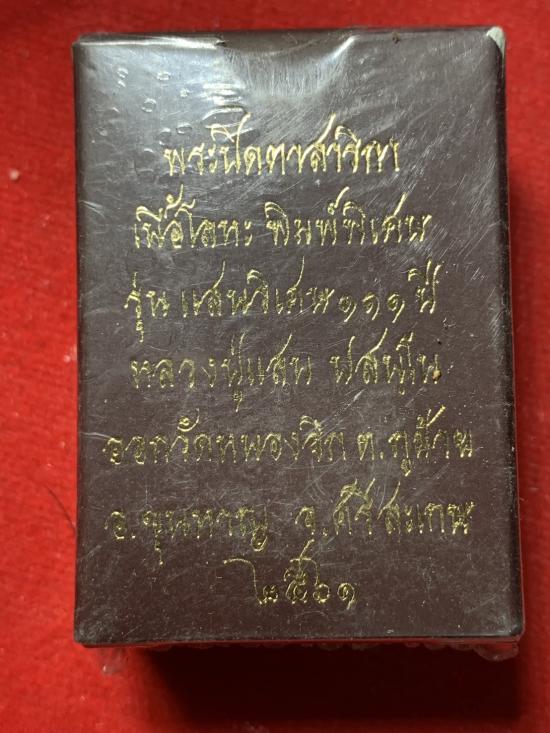 พระปิดตาสาริกา
เนื้อโลหะ พิมพ์พิเศษ
รุ่น แสนวิเศษ ๑๑๑ ปี
หลวงปู่แสน ปสนฺโน
ออกวัดหนองจิก ต.ภูฝ้าย
อ.ขุนหาญ จ.ศรีสะเกษ
๒๕๖๑